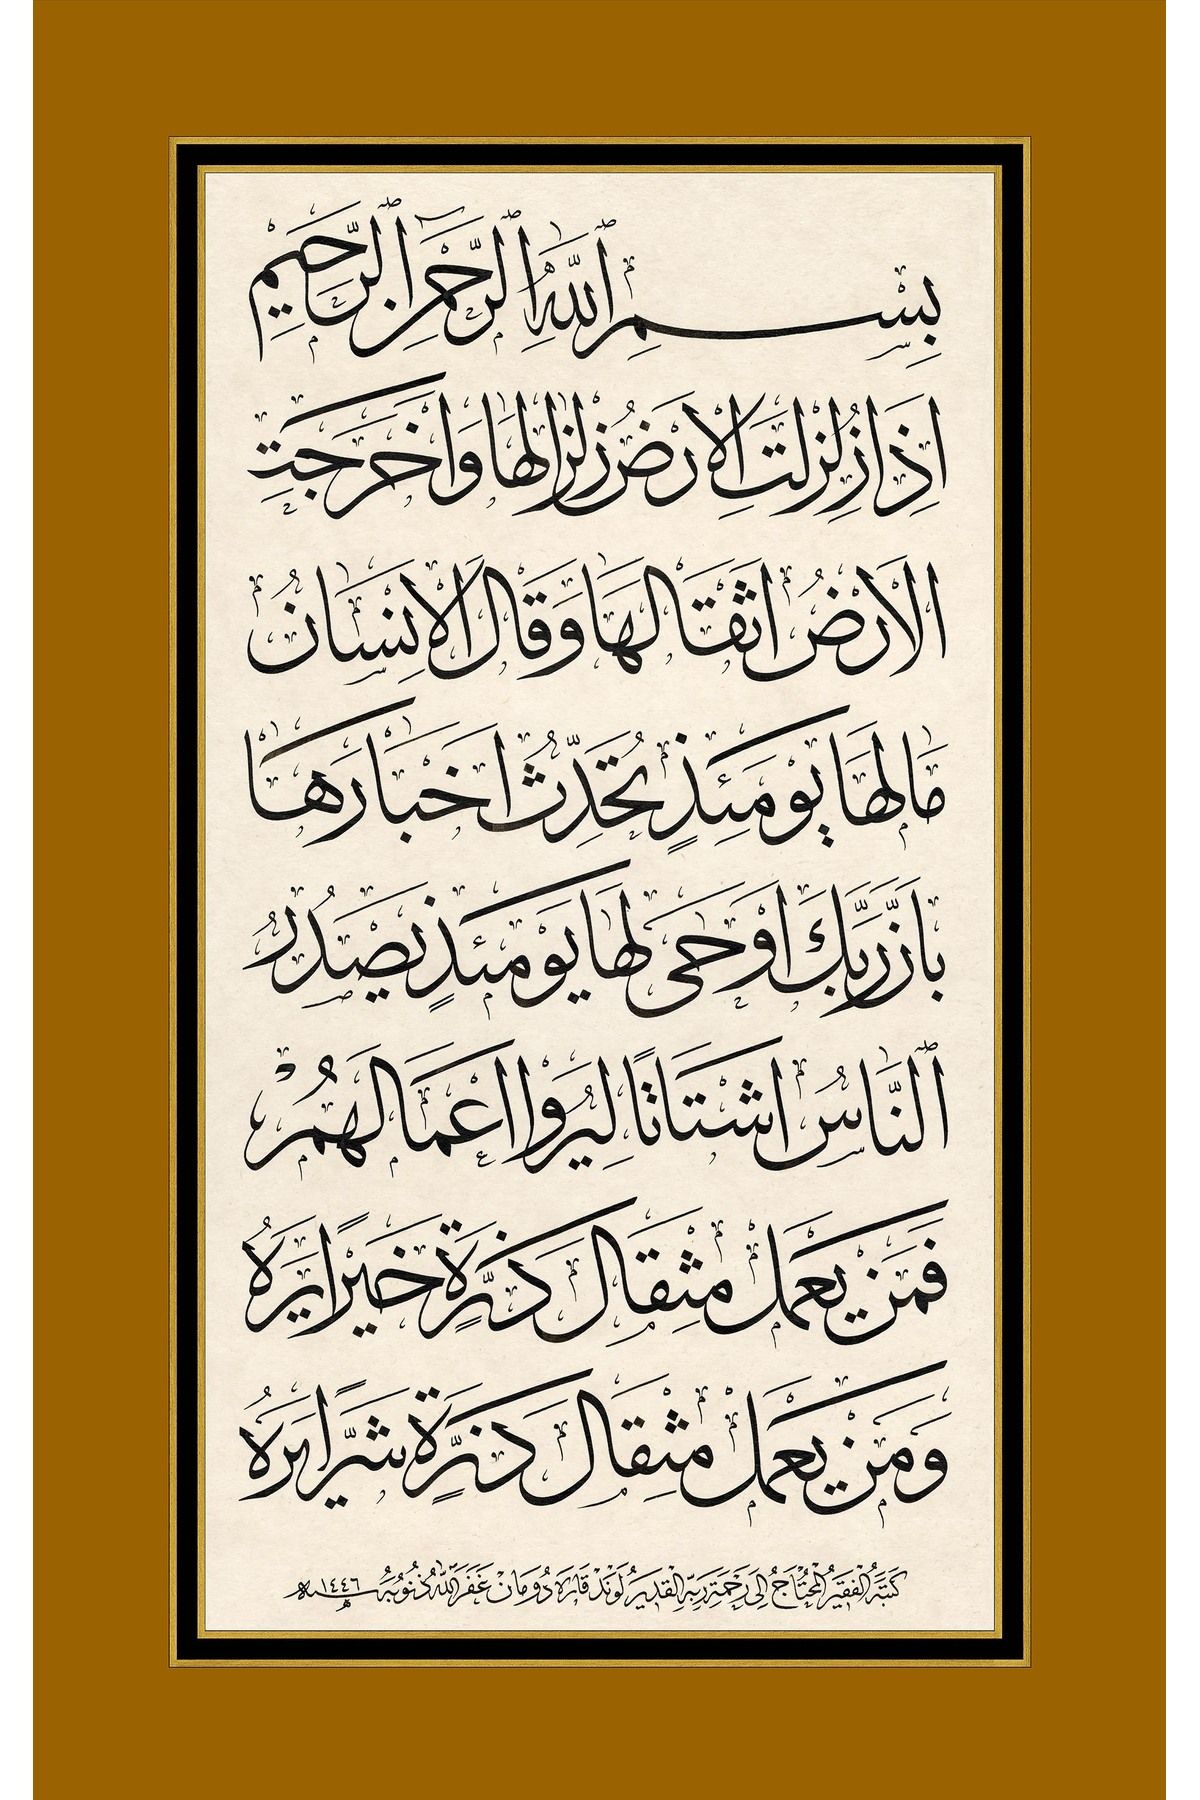 بِسْمِ اللّٰهِ الرَّحْمٰنِ الرَّحِيمِ
اِذَا زُلْزِلَتِ الْاَرْضُ زِلْزَالَهَا وَاَخْرَجَتِ
الْاَرْضُ اَثْقَالَهَا وَقَالَ الْاِنْسَانُ
مَا لَهَا يَوْمَئِذٍ تُحَدِّثُ اَخْبَارَهَا
بِاَنَّ رَبَّكَ اَوْحٰى لَهَا يَوْمَئِذٍ يَصْدُرُ
النَّاسُ اَشْتَاتًا لِيُرَوْا اَعْمَالَهُمْ
فَمَنْ يَعْمَلْ مِثْقَالَ ذَرَّةٍ خَيْرًا يَرَهُ
وَمَنْ يَعْمَلْ مِثْقَالَ ذَرَّةٍ شَرًّا يَرَهُ
كَتَبَهُ الْفَقِيرُ الْمُحْتَاجُ اِلَى رَحْمَةِ رَبِّهِ الْقَدِيرُ لَوَنْدْ قَارَه دُومَانْ غَفَرَ اللّٰهُ ذُنُوبَهُ سنه ١٤٤٦